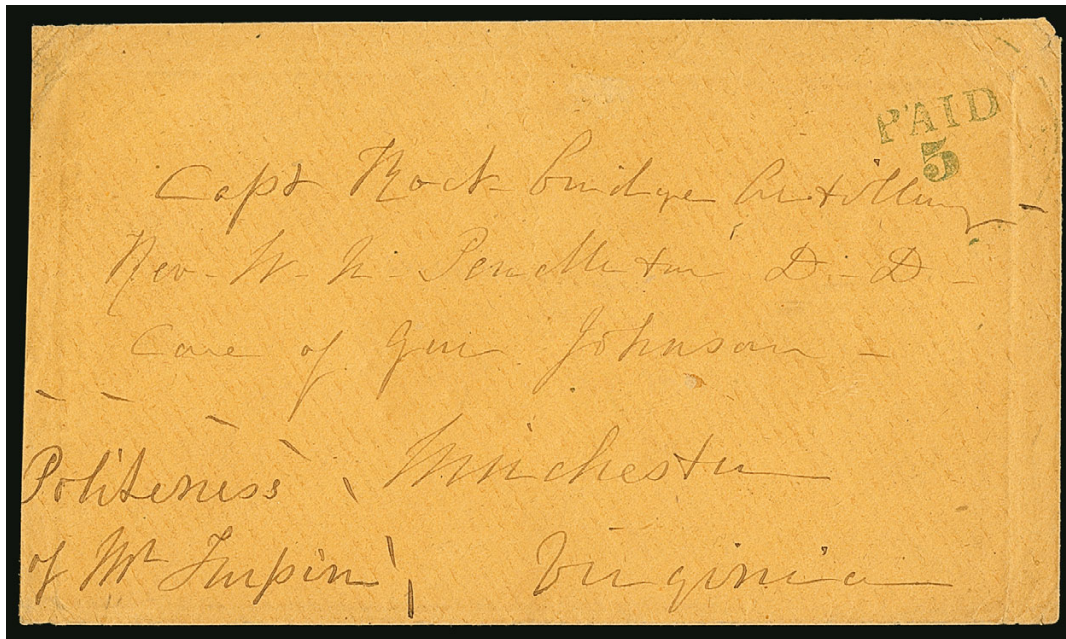 PAID
5
Capt Rockbridge Artillery
Rev. W. N. Pendleton D. D.
Care of Gen Johnson
Winchester
Virginia
Politeness
of Mr